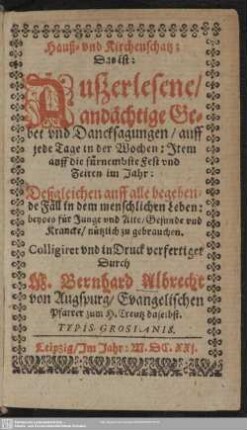 Hauß- vnd Kirchenschatz:
Das ist:
Außerlesene/
andächtige Ge-
bet vnd Dancksagungen / auff
jede Tage in der Wochen: Item
auff die fürnembste Fest vnd
Zeiten im Jahr:
Deßgleichen auff alle begeben-
de Fäll in dem menschlichen Leben:
beydes für Junge vnd Alte / Gesunde vnd
Krancke / nützlich zu gebrauchen.
Colligiret vnd in Druck verfertiget
Durch
M. Bernhard Albrecht
von Augspurg / Evangelischen
Pfarrer zum H. Creutz daselbst.
TYPIS GROSIANIS.
Leipzig / Im Jahr: M. DC. XXI.